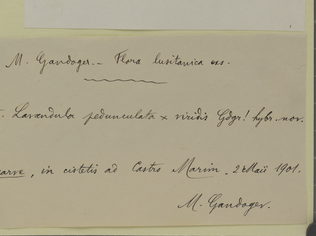 M. Gandoger. - Flora lusitanica exs.
Lavandula pedunculata × viridis Gdgr.! hybr. nov.
, in cistetis ad Castro Marim. 2 Maii 1901.
M. Gandoger.